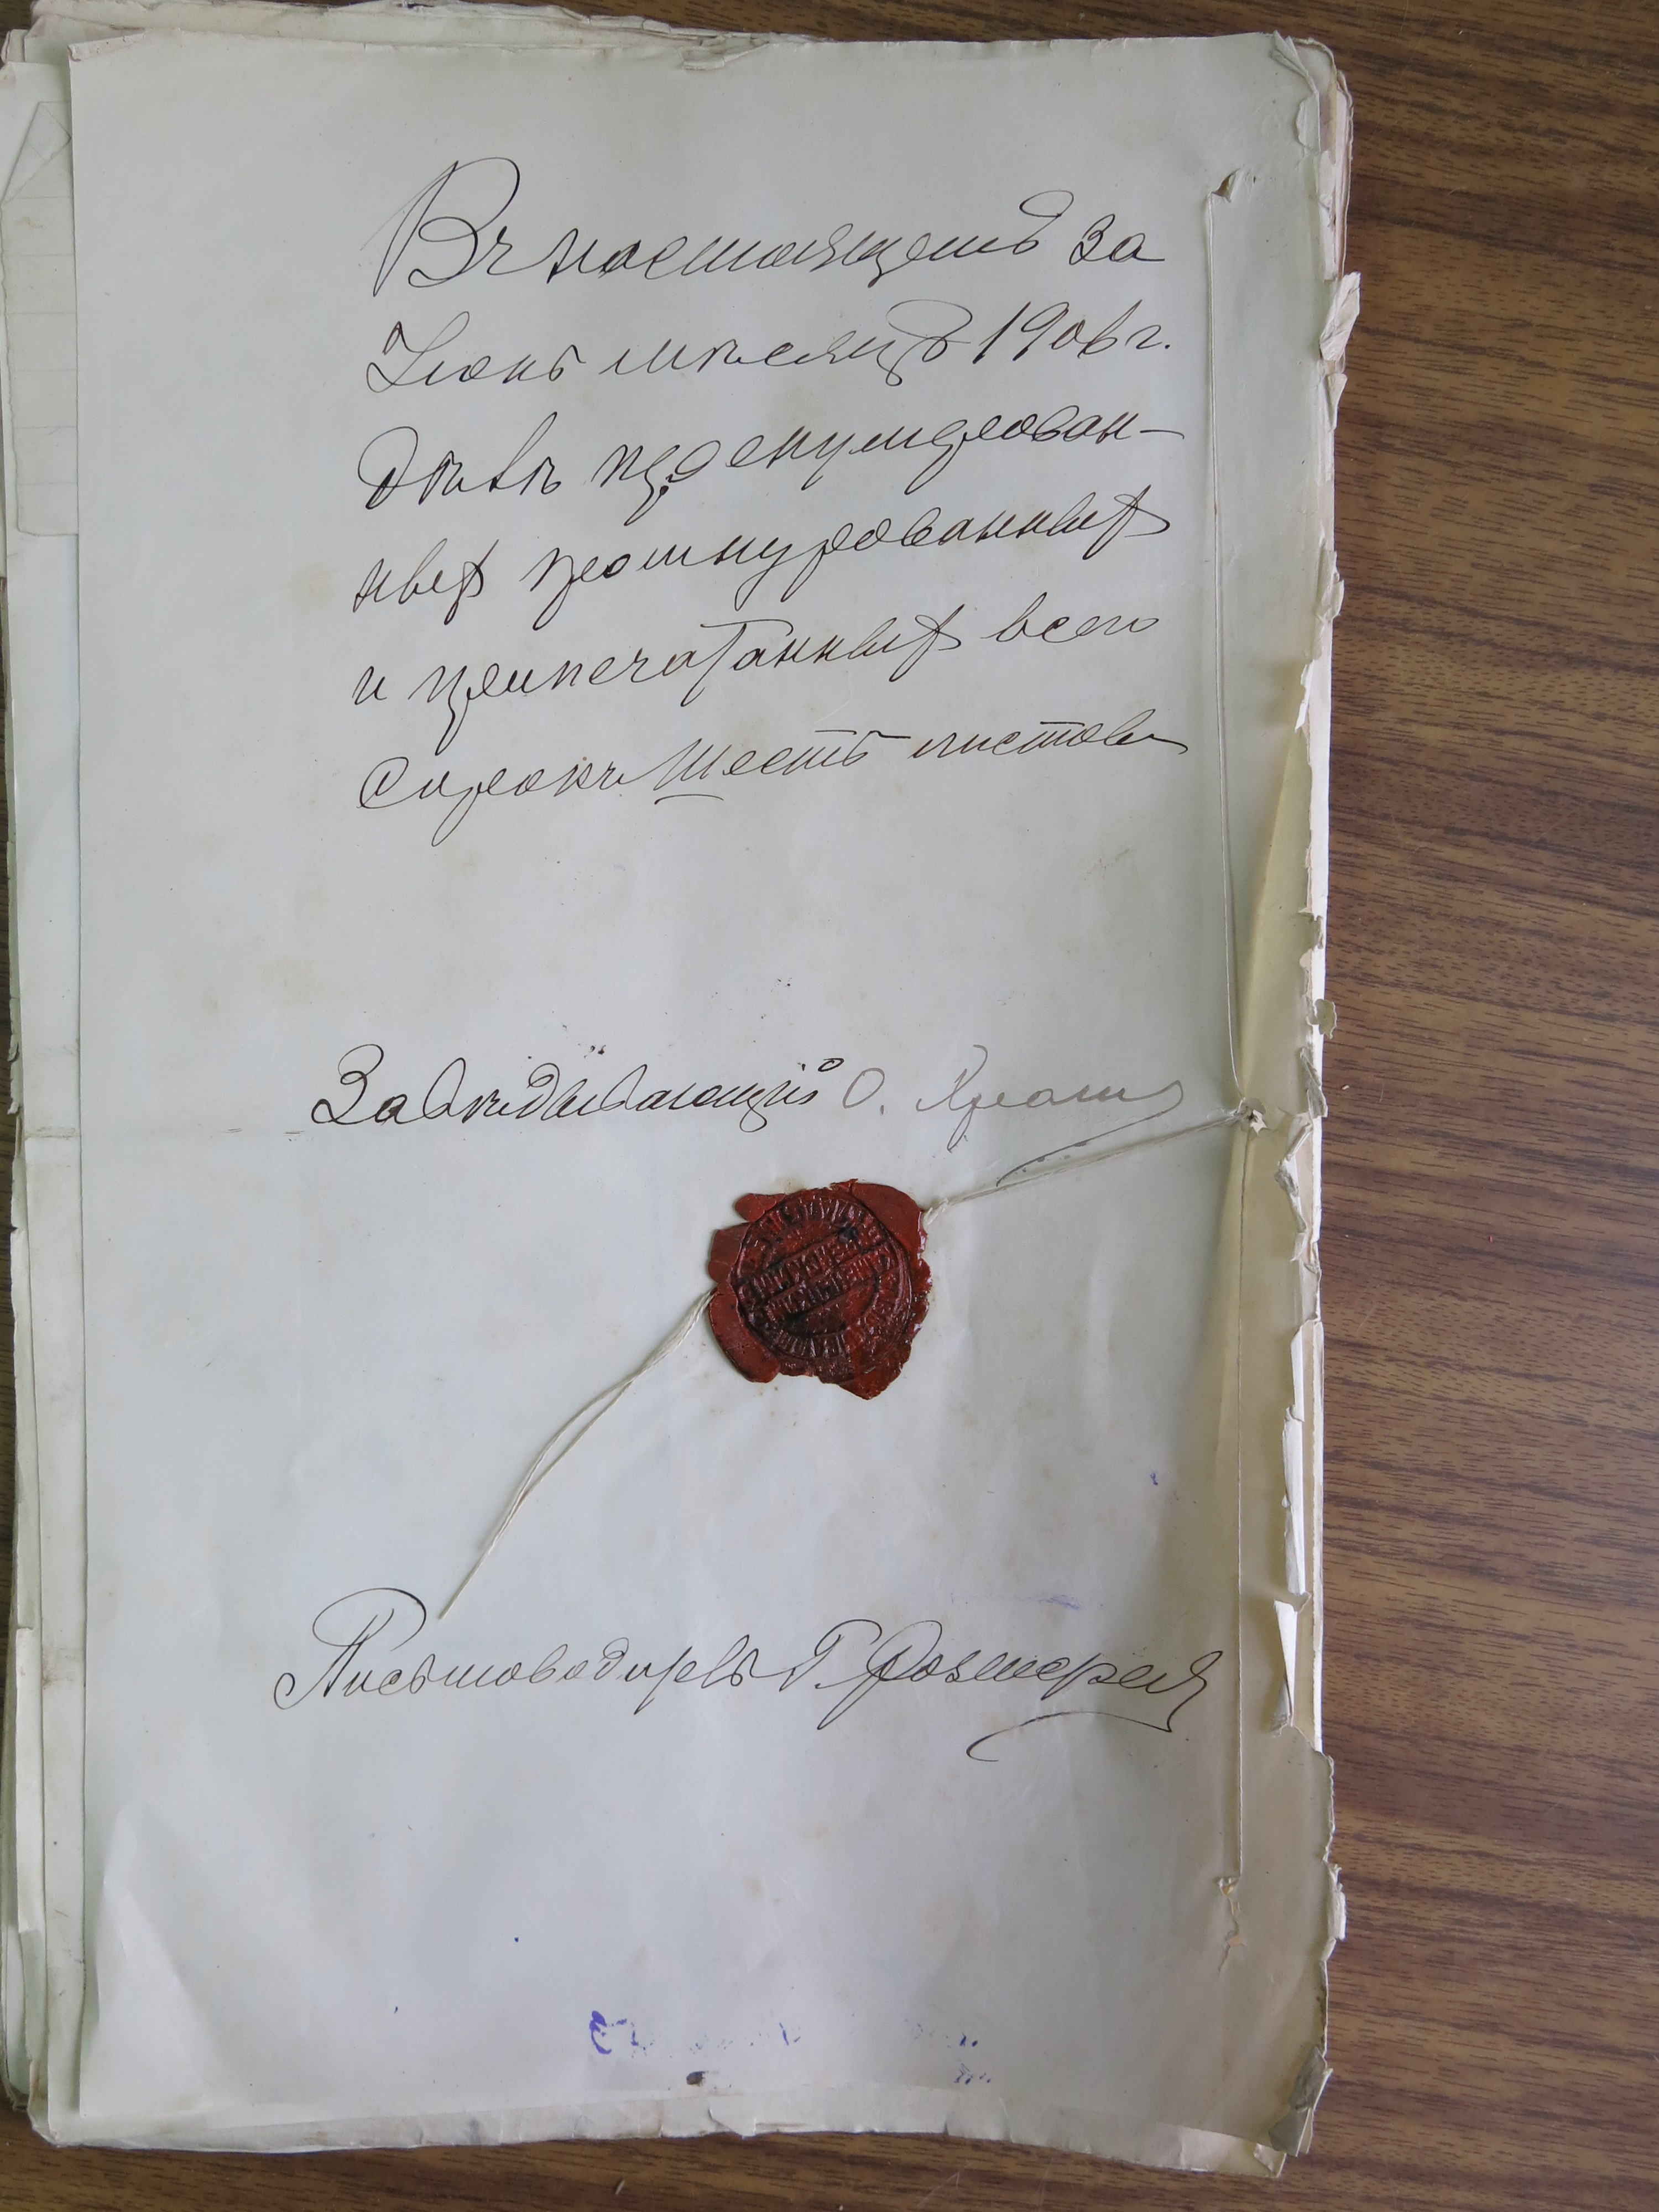 Въ настоящемъ за
Iюнь мѣсяцъ 1906 г.
дѣлѣ пронумерован-
ныхъ прошнурованныхъ
и припечатанныхъ всего
сорокъ шесть листовъ
Завѣдывающій О.
Письмоводитель Г.